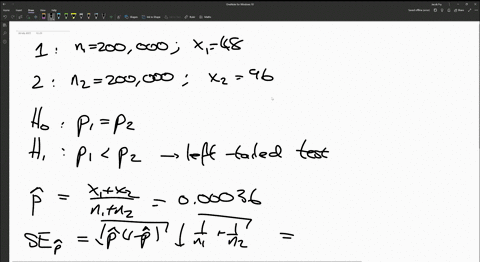 1 : n=200,000 ; x₁=48
2 : n₂=200,000 ; x₂=96
H₀ : p₁=p₂
H₁ : p₁<p₂ → left tailed test
p̂ = (x₁+x₂)/(n₁+n₂) = 0.00036
SE_p̂ = √(p̂(1-p̂)) √(1/n₁+1/n₂) =